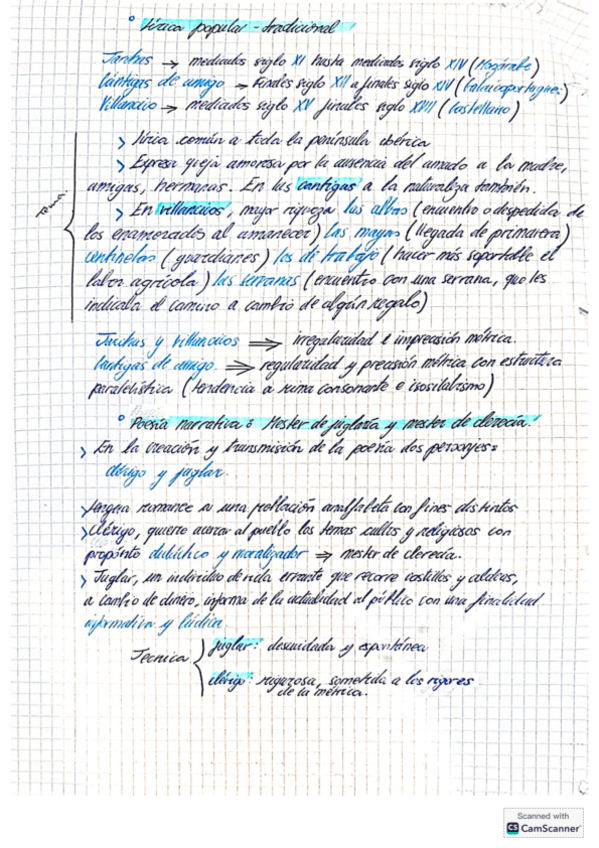 ° Lírica popular-tradicional
Jarchas → mediados siglo XI hasta mediados siglo XIV (Mozárabe)
Cántigas de amigo → Finales siglo XII a finales siglo XIV (Galaicoportugués)
Villancico → mediados siglo XV finales siglo XVII (Castellano)
> lírica común a toda la península ibérica
> Expresa queja amorosa por la ausencia del amado a la madre,
amigas, hermanas. En las cantigas a la naturaleza también.
> En villancicos, mayor riqueza las albas (encuentro o despedida de
los enamorados al amanecer) las mayas (llegada de primavera)
centinelas (guardianes) los de trabajo (hacer más soportable el
labor agrícola) las serranas (encuentro con una serrana, que les
indicaba el camino a cambio de algún regalo)
Jarchas y villancicos ⇒ irregularidad e imprecisión métrica.
Cantigas de amigo ⇒ regularidad y precisión métrica con estructura
paralelística (tendencia a rima consonante e isosilabismo)
° Poesía narrativa: Mester de juglaría y mester de clerecía.
> En la creación y transmisión de la poesía dos personajes:
clérigo y juglar.
> lengua romance a una población analfabeta con fines distintos
> Clérigo, quiere acercar al pueblo los temas cultos y religiosos con
propósito didáctico y moralizador ⇒ mester de clerecía.
> Juglar, un individuo de vida errante que recorre castillos y aldeas,
a cambio de dinero, informa de la actualidad al público con una finalidad
informativa y lúdica
Técnica { juglar: descuidada y espontánea
clérigo: rigurosa, sometida a los rigores
de la métrica.
Scanned with
CS CamScanner